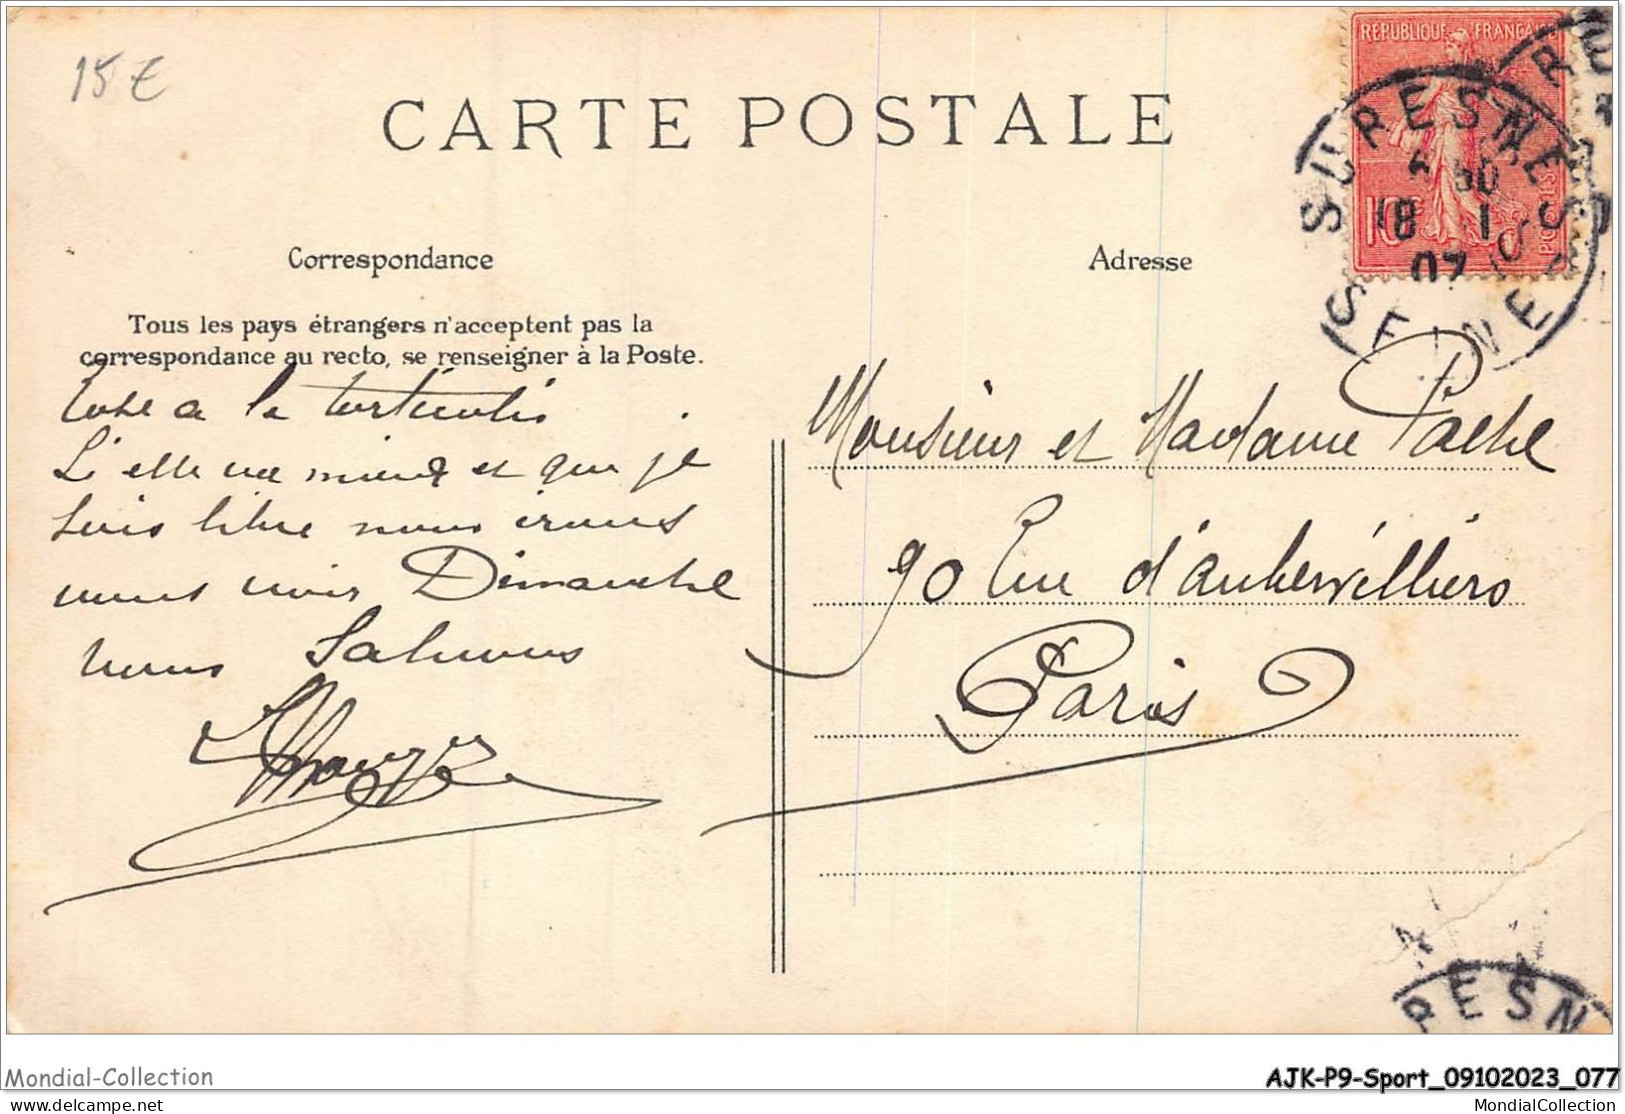 15 €
CARTE POSTALE
REPUBLIQUE FRANÇAISE
10
POSTES
SURESNES
18 1
07
SEINE
Correspondance
Adresse
Tous les pays étrangers n'acceptent pas la
correspondance au recto, se renseigner à la Poste.
a le torticolis
Si elle va mieux et que je
suis libre nous irons
vous voir Dimanche
nous Saluons
Monsieur et Madame
90 Rue d'aubervilliers
Paris
RESN
Mondial-Collection
AJK-P9-Sport_09102023_077
delcampe.net
MondialCollection